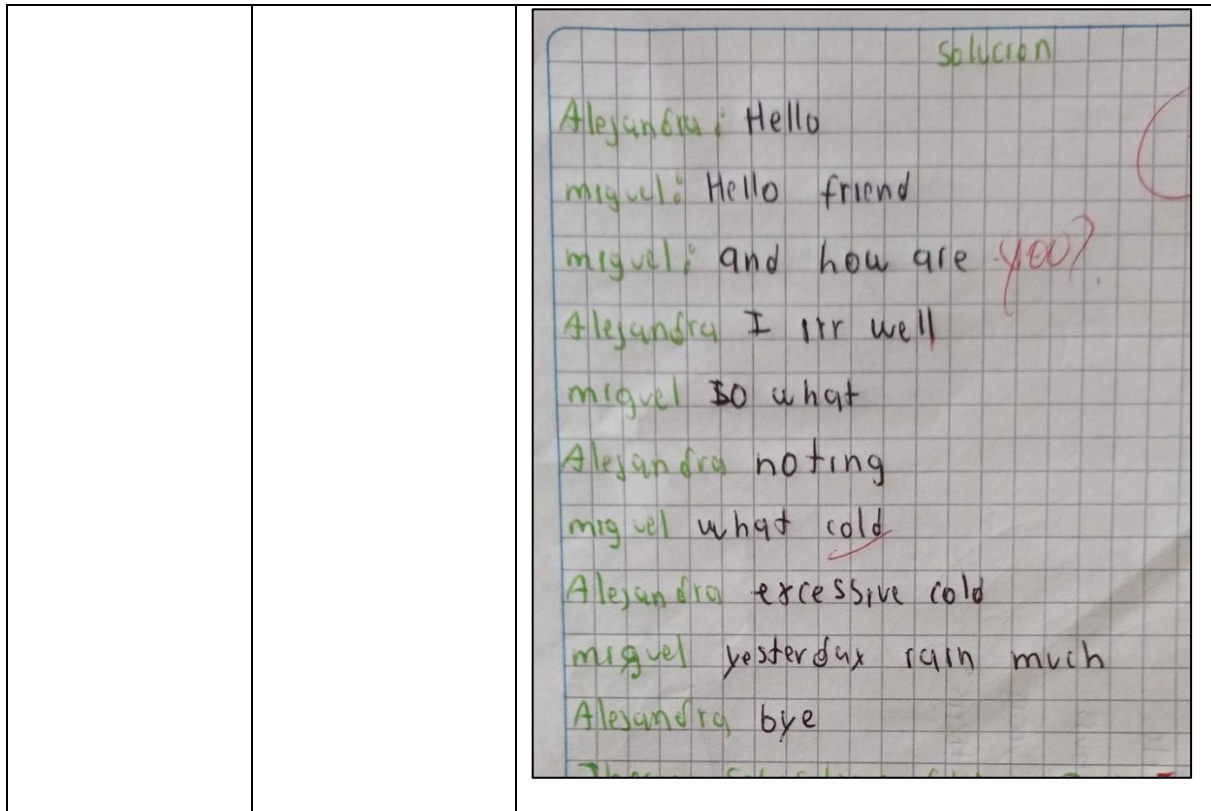 solucion
Alejandra: Hello
miguel: Hello friend
miguel: and how are you?
Alejandra I irr well
miguel so what
Alejandra noting
miguel what cold
Alejandra excessive cold
miguel yesterdax rain much
Alejandra bye